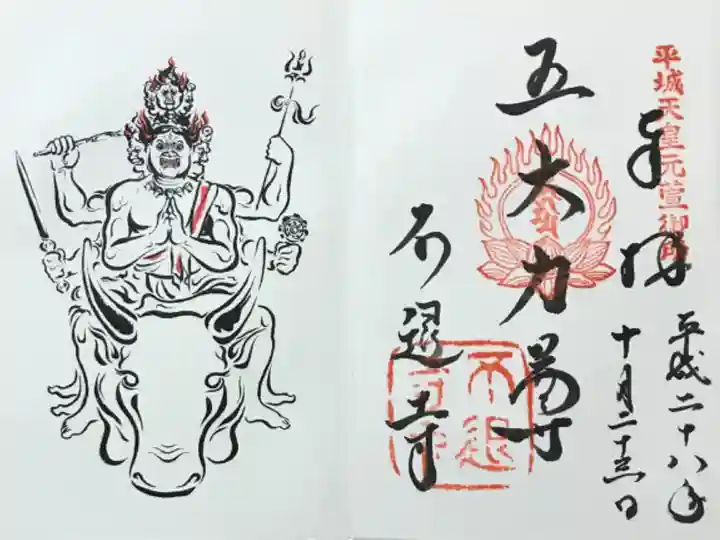 平城天皇元萱御所
奉拝
平成二十八年
十月二十三日
五大力尊
不退寺
不退寺印